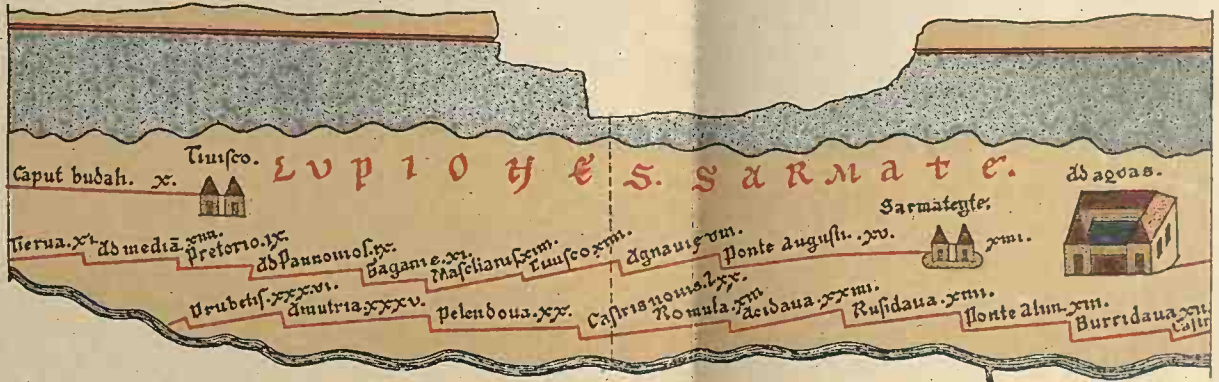 Tiuisco.
LUPIONES. SARMATE.
ad aquas.
Caput budali. x.
Sarmategte.
xiiii.
Tierua. xi. ad mediã xiiii. pretorio. ix. ad Pannonios. ix. gaganis. xi. Masclianis xiiii. Tiuisco xiiii. Agnauie viii. Ponte augusti. xv.
Drubetis. xxxvi. Amutria. xxxv. Pelendoua. xx. Castris nouis. lxx. Romula. xiii. Acidaua. xxiiii. Rusidaua. xiiii. Ponte aluti. xiii. Burridaua. xii.